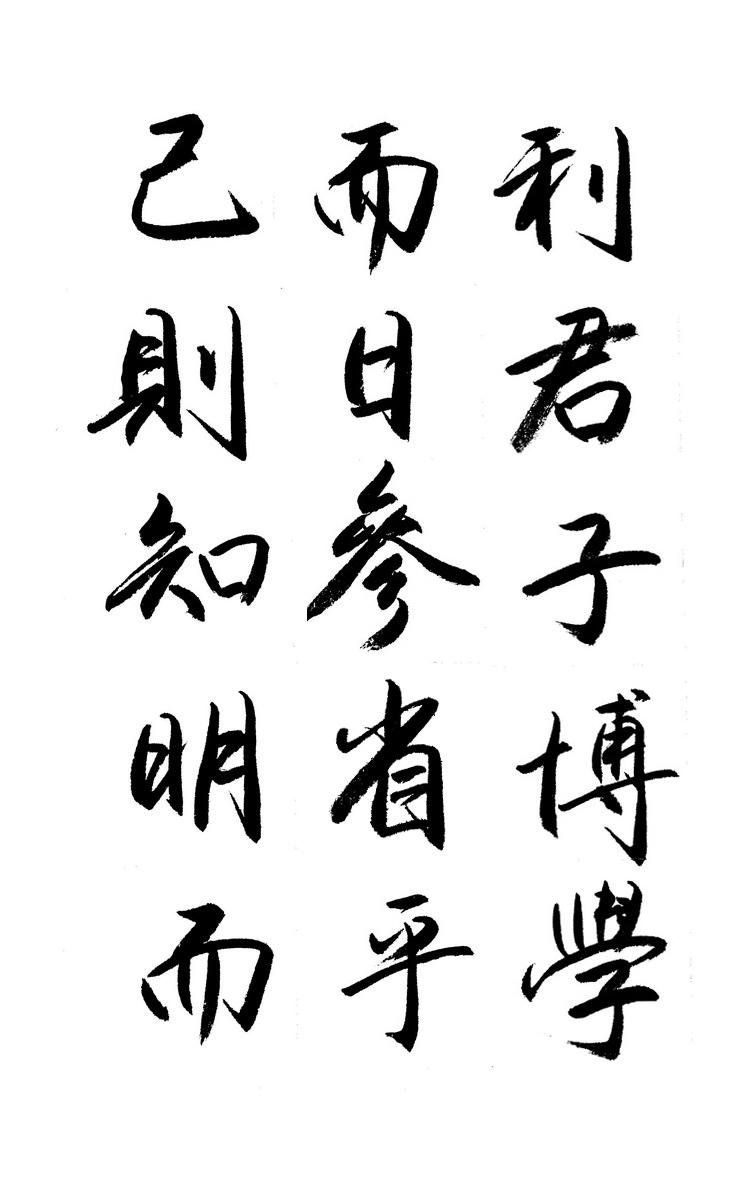 利君子博學
而日參省乎
己則知明而